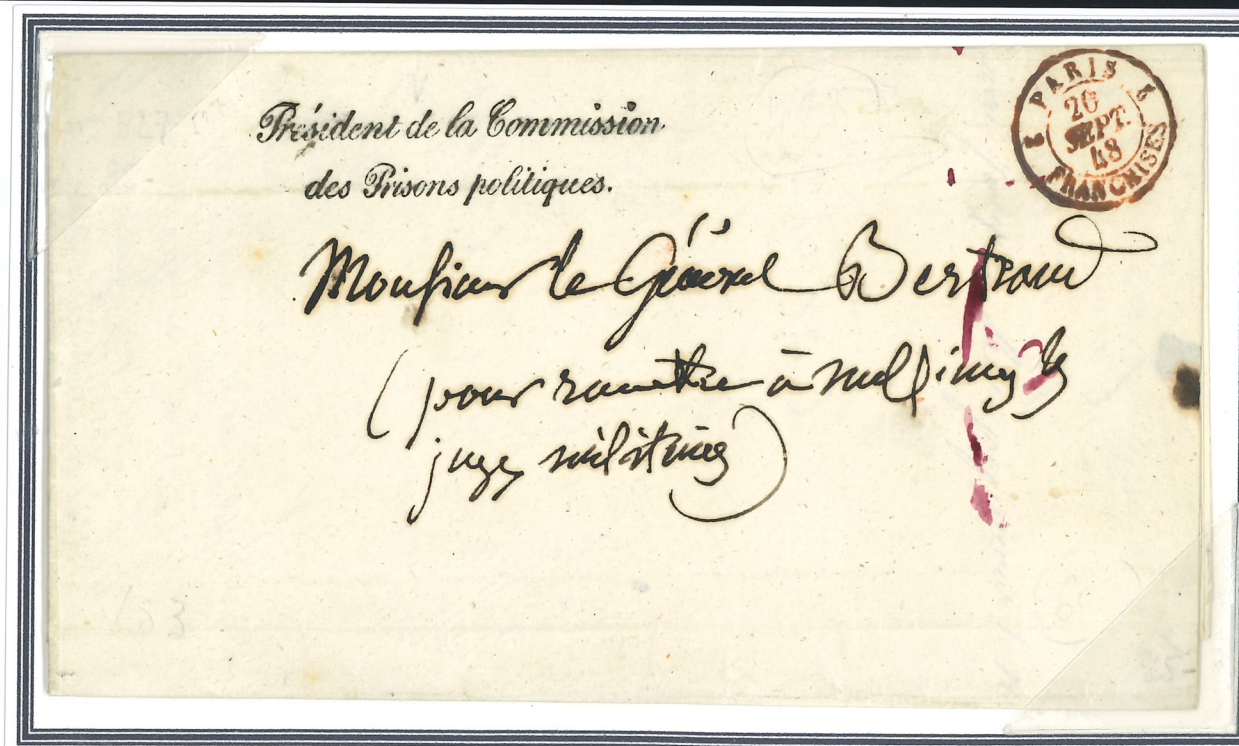 Président de la Commission
des Prisons politiques.
PARIS
20
SEPT.
48
FRANCHISES
Monsieur le Général Bertrand
(pour remettre à
juges militaires)